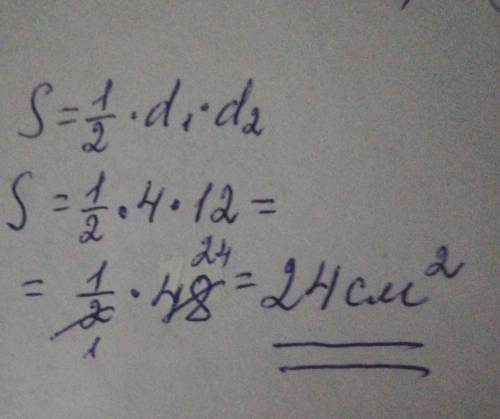 S = 1/2 · d₁ · d₂
S = 1/2 · 4 · 12 =
= 1/2 · 48 = 24 см²
24
1